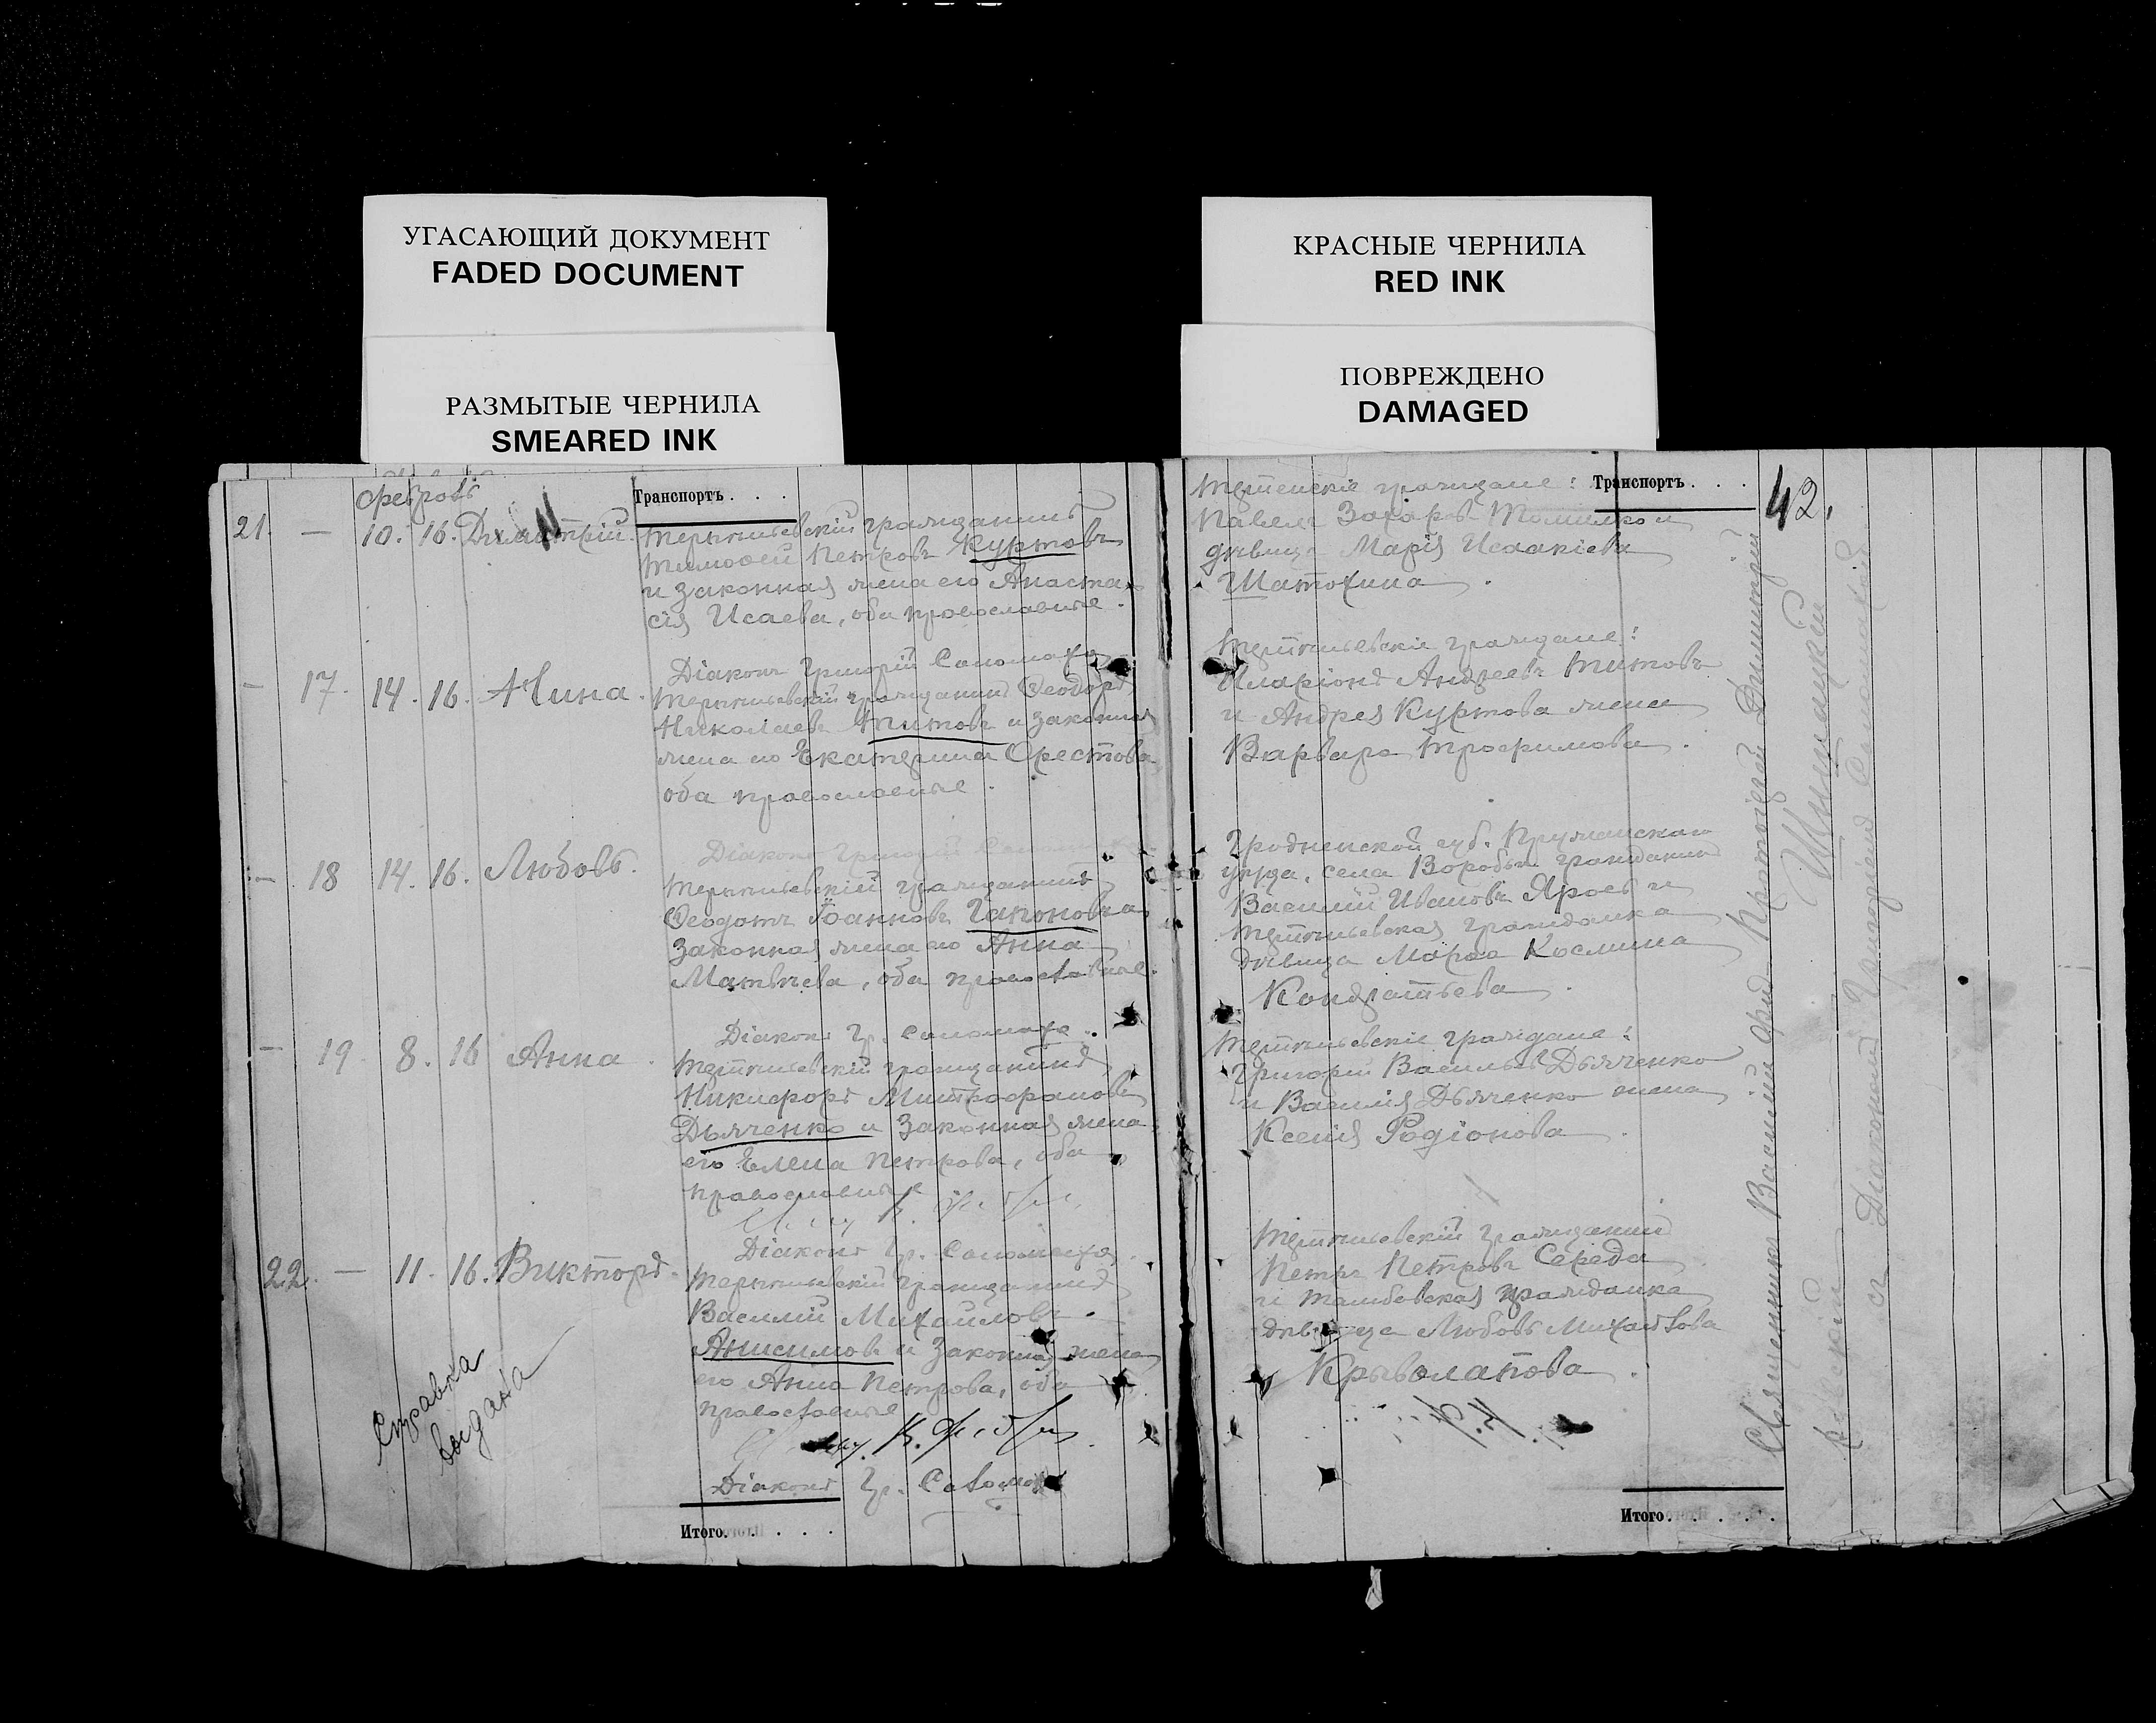 УГАСАЮЩИЙ ДОКУМЕНТ
FADED DOCUMENT
РАЗМЫТЫЕ ЧЕРНИЛА
SMEARED INK
КРАСНЫЕ ЧЕРНИЛА
RED INK
ПОВРЕЖДЕНО
DAMAGED
Транспортъ . . .
21. — 10. 16. Димитрій.
гражданинъ
Тимоѳей Петровъ Куртовъ
и законная жена его Анаста-
сія Исаева, оба православные.
Діаконъ Григорій Саломаха
— 17. 14. 16. Нина.
гражданинъ Ѳеодоръ
Николаевъ Титовъ и законная
жена его Екатерина Орестова
оба православные.
Діаконъ Григорій
— 18 14. 16. Любовь.
гражданинъ
Ѳеодотъ Іоанновъ Гапоновъ и
законная жена его Анна
Матвѣева, оба православные.
Діаконъ Гр. Саломаха.
— 19 8. 16 Анна.
гражданинъ
Никифоръ Митрофановъ
Дьяченко и законная жена
его Елена Петрова, оба
православные
Діаконъ Гр. Саломаха.
22. — 11. 16. Викторъ.
гражданинъ
Василій Михаиловъ
Анисимовъ и законная жена
его Анна Петрова, оба
православные
Діаконъ Гр. Саломаха
Справка
выдана
Итого . . . .
Транспортъ . . .
42.
граждане:
Павелъ Захаровъ и
дѣвица Марія Исаакіева
Шатохина.
граждане:
Иларіонъ Андреевъ Титовъ
и Андрея Куртова жена
Варвара Трофимова.
Гродненской губ. Пружанскаго
уѣзда, села гражданинъ
Василій Ивановъ и
гражданка
дѣвица Марѳа Космина
Кондратьева.
граждане:
Григорій Васильевъ Дьяченко
и Василія Дьяченко жена
Ксенія Родіонова.
гражданинъ
Петръ Петровъ Середа
и Тамбовская гражданка
дѣвица Любовь Михайлова
Криволапова.
Итого . . . .
Священникъ Василій
Протоіерей Димитрій
Діаконъ Григорій Саломаха